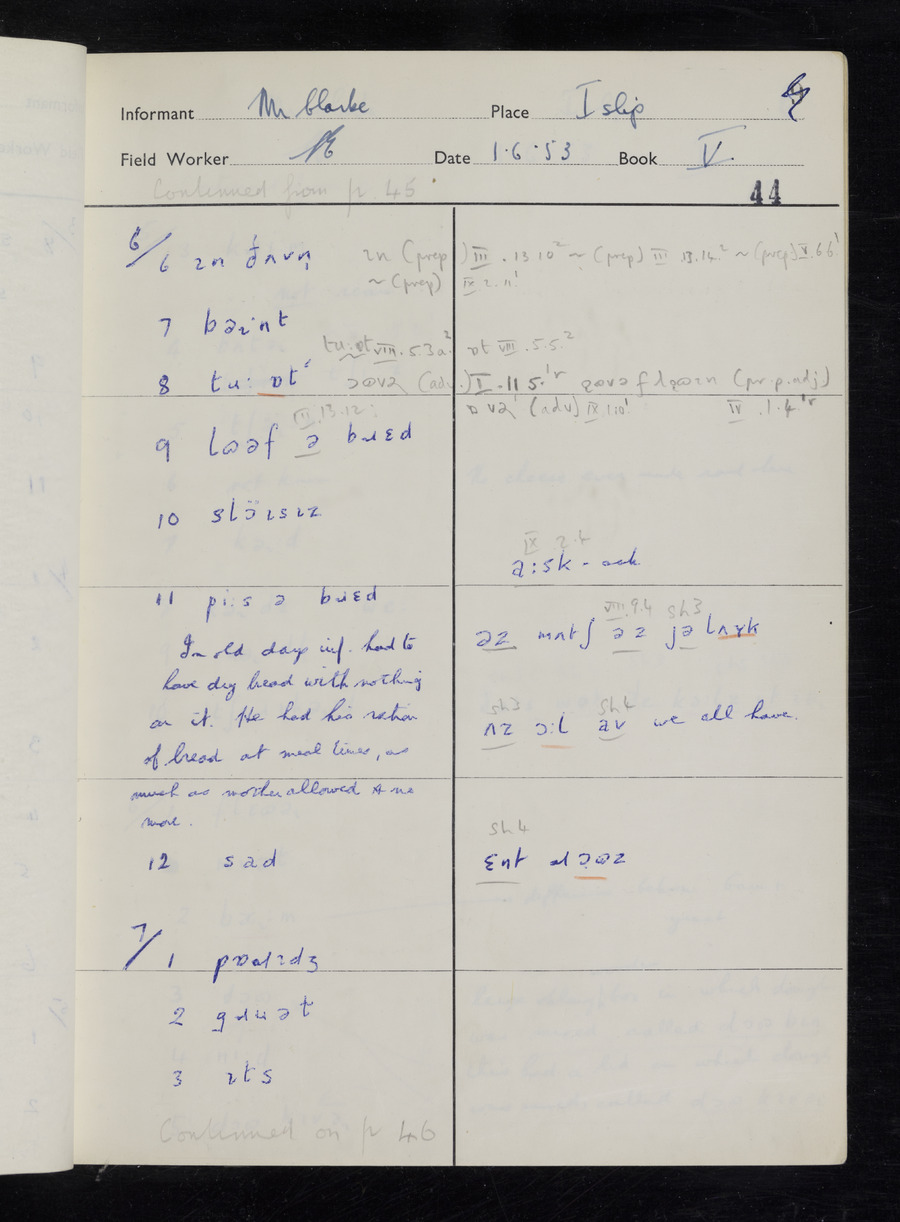 Informant Mr Clarke Place Islip
Field Worker Date 1·6·53 Book V.
Continued from p 45
44
6/ 6 ɪn ðʌvn̩ ɪn (prep) III.13 10² ~ (prep) III 13.14² ~ (prep) V.6 6¹
~ (prep) IX 2.11¹
7 bəɪnt
tu:ɒt VIII.5.3a² ɒt VIII.5.5²
8 tu: ɒt
ɒvə (adv) IX 1.10¹ IV.1.4
VII.13.12
9 lʊəf ə bɹɛd
10 slɔ̈ɪsɪz
IX 2.4
a:sk - ask
11 pi:s ə bɹɛd
VIII.9.4 sh3
əz mʌtʃ əz jə lʌɪk
In old days inf. had to
have dry bread with nothing
on it. He had his ration
of bread at meal times, as
much as mother allowed & no
more.
sh3 sh4
ʌz ɔ:l av we all have.
12 sad
sh4
ɛnt
7/ 1 pɒəɹɪdʒ
2 gɹuət
3 ɪts
Continued on p 46